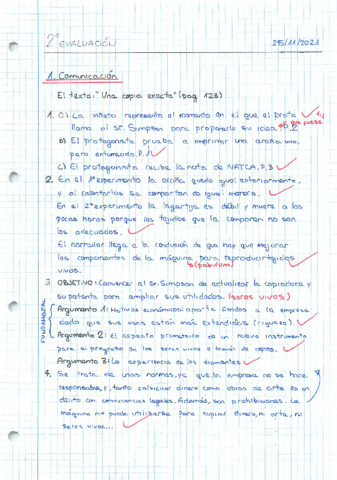 2ª EVALUACIÓN 25/11/2021
1. Comunicación
El texto: "Una copia exacta" (pag 128)
1. a) La viñeta representa el momento en el que el prota
llama al Sr. Simpson para proponerle su idea. P.2
b) El protagonista prueba a imprimir una araña viva,
pero entumecida. P.1
c) El protagonista recibe la nota de NATCA. P.3
2. En el 1º experimento la araña queda igual exteriormente,
y al calentarlas se comportan de igual manera.
En el 2º experimento la lagartija es débil y muere a las
pocas horas porque los tejidos que la componen no son
los adecuados.
El narrador llega a la conclusión de que hay que mejorar
los componentes de la máquina para reproducir tejidos
vivos. (pabulum)
3 OBJETIVO: Convencer al Sr. Simpson de actualizar la copiadora y
su patente para ampliar sus utilidades. (seres vivos)
FUNDAMENTAL
Argumento 1: Motivos económicos: aporta fondos a la empresa
dado que sus usos están más extendidos (riqueza)
Argumento 2: El aspecto prometeico de un nuevo instrumento
para el progreso en los seres vivos a través de copias.
Argumento 3: La experiencia de los diamantes
4. Se trata de unas normas, ya que la empresa no se hace
responsable, y tanto falsificar dinero como obras de arte es un
delito con consecuencias legales. Además, son prohibiciones. La
máquina no puede utilizarse para copiar dinero, ni arte, ni
seres vivos...